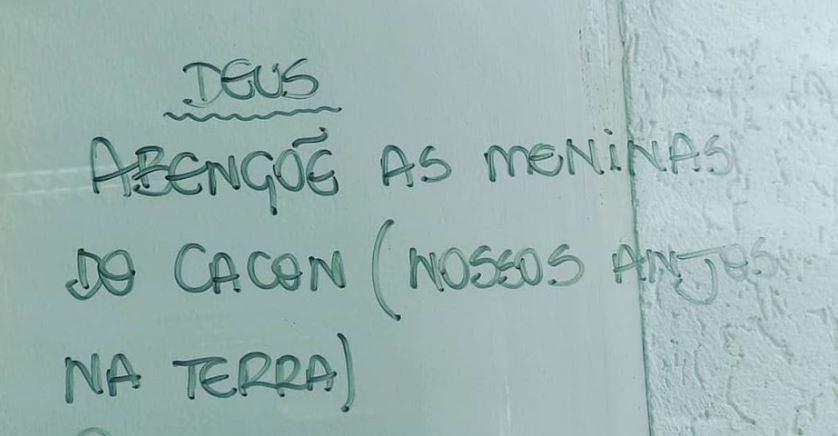 DEUS
ABENÇÕE AS MENINAS
DO CACON (NOSSOS ANJOS
NA TERRA)